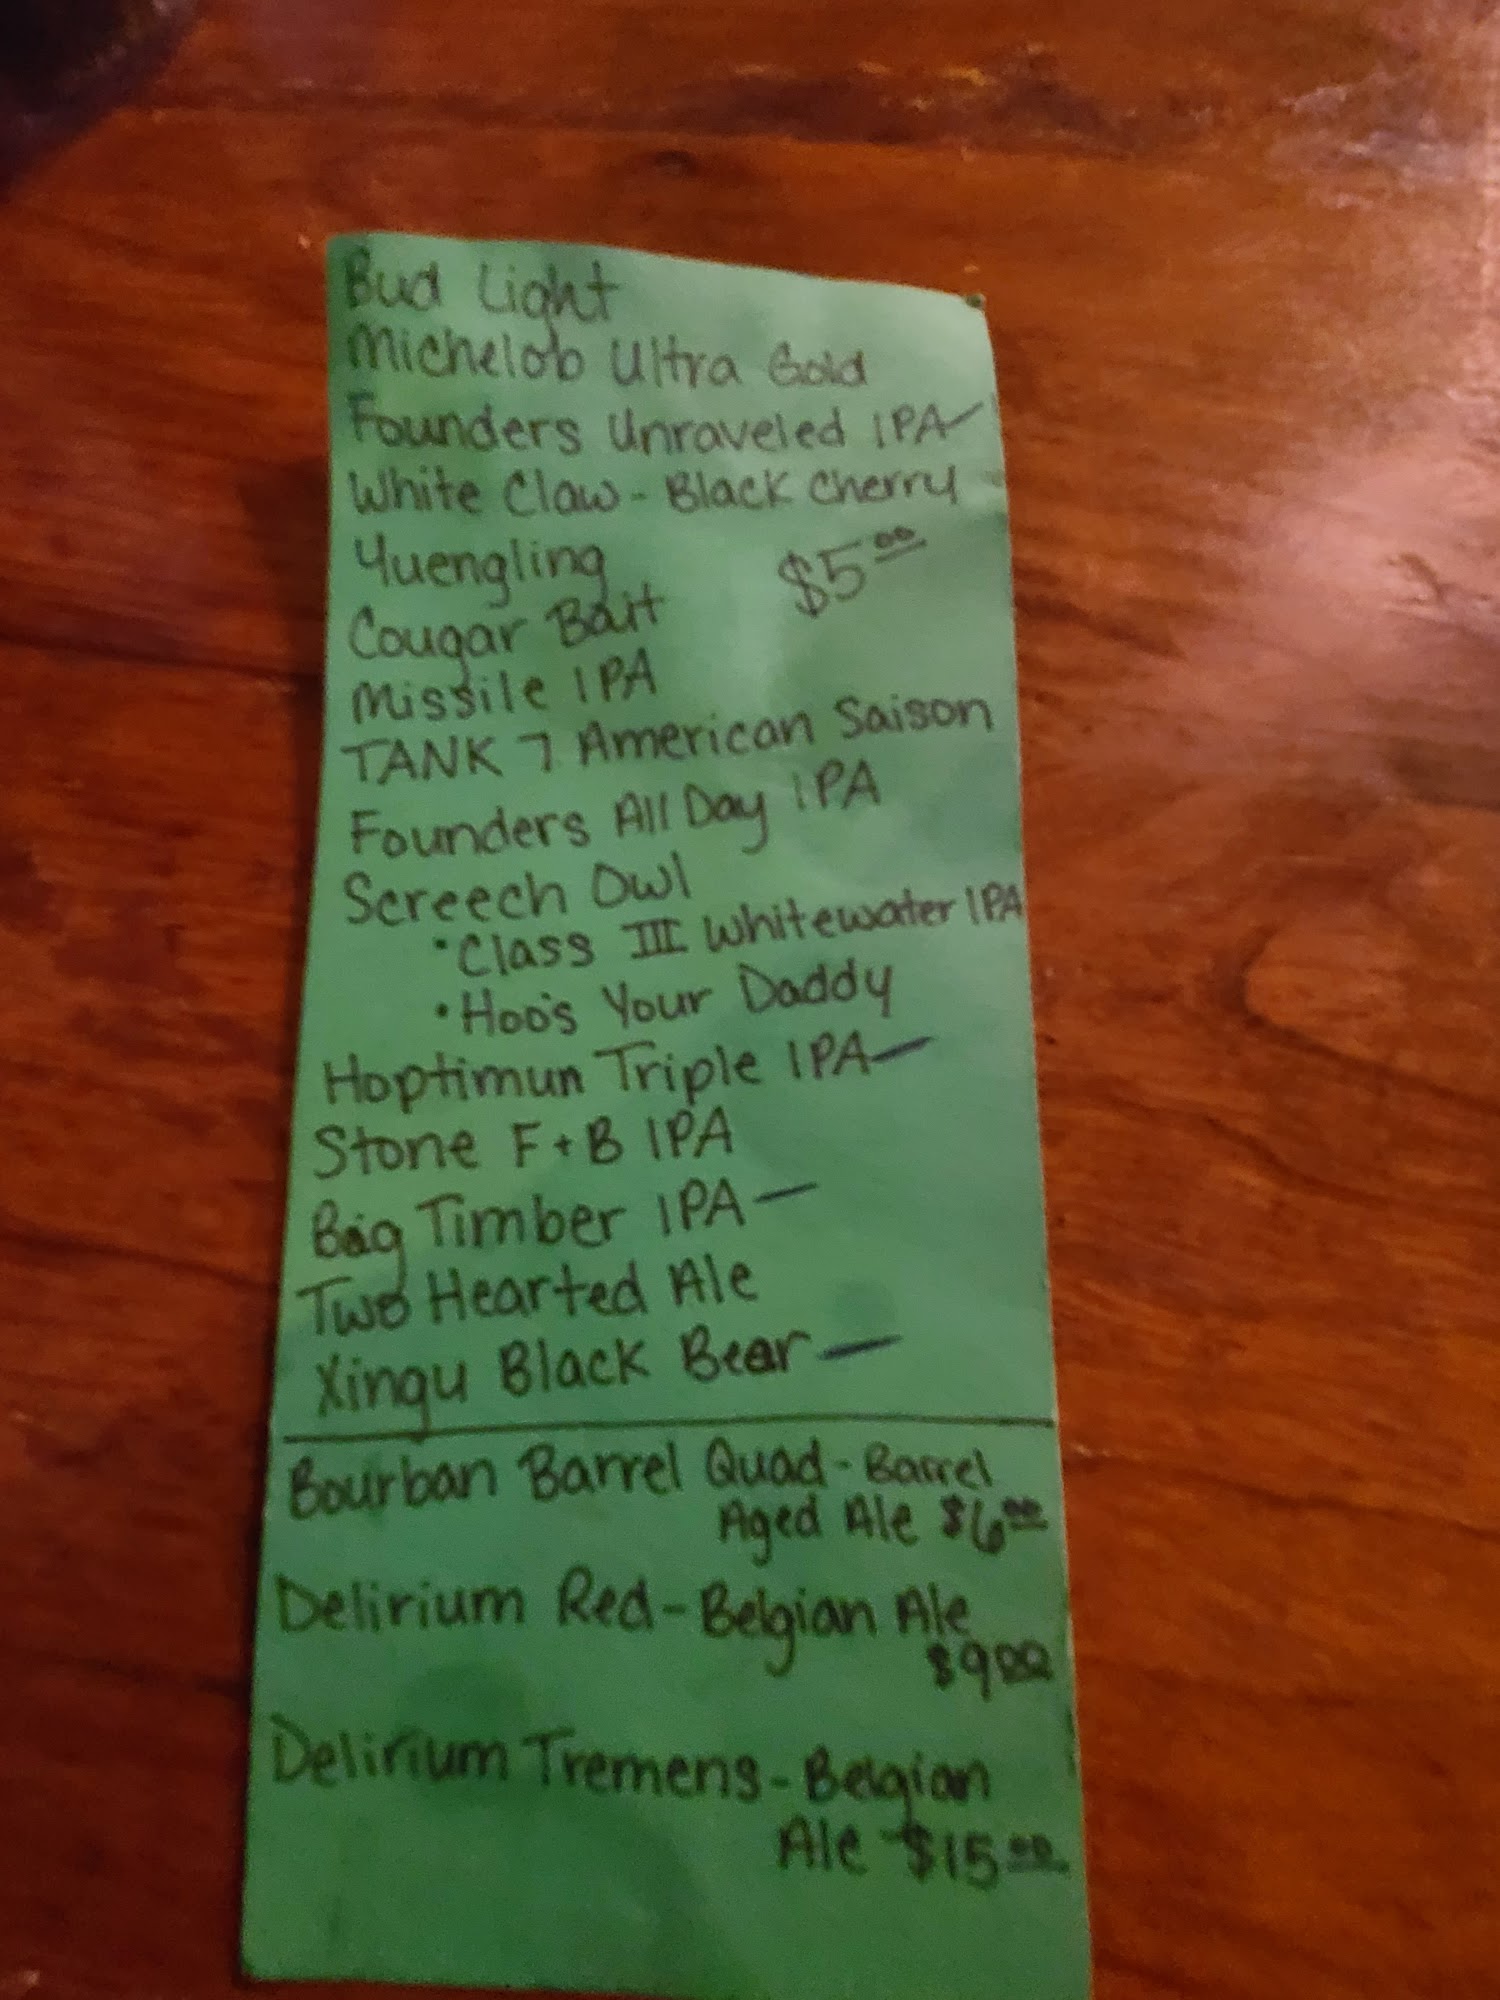 Bud Light
Michelob Ultra Gold
Founders Unraveled IPA-
White Claw - Black Cherry
Yuengling $5.00
Cougar Bait
Missile IPA
TANK 7 American Saison
Founders All Day IPA
Screech Owl
• Class III Whitewater IPA
• Hoo's Your Daddy
Hoptimun Triple IPA-
Stone F+B IPA
Big Timber IPA-
Two Hearted Ale
Xingu Black Bear-
Bourban Barrel Quad - Barrel
Aged Ale $6.00
Delirium Red - Belgian Ale
$9.00
Delirium Tremens - Belgian
Ale $15.00